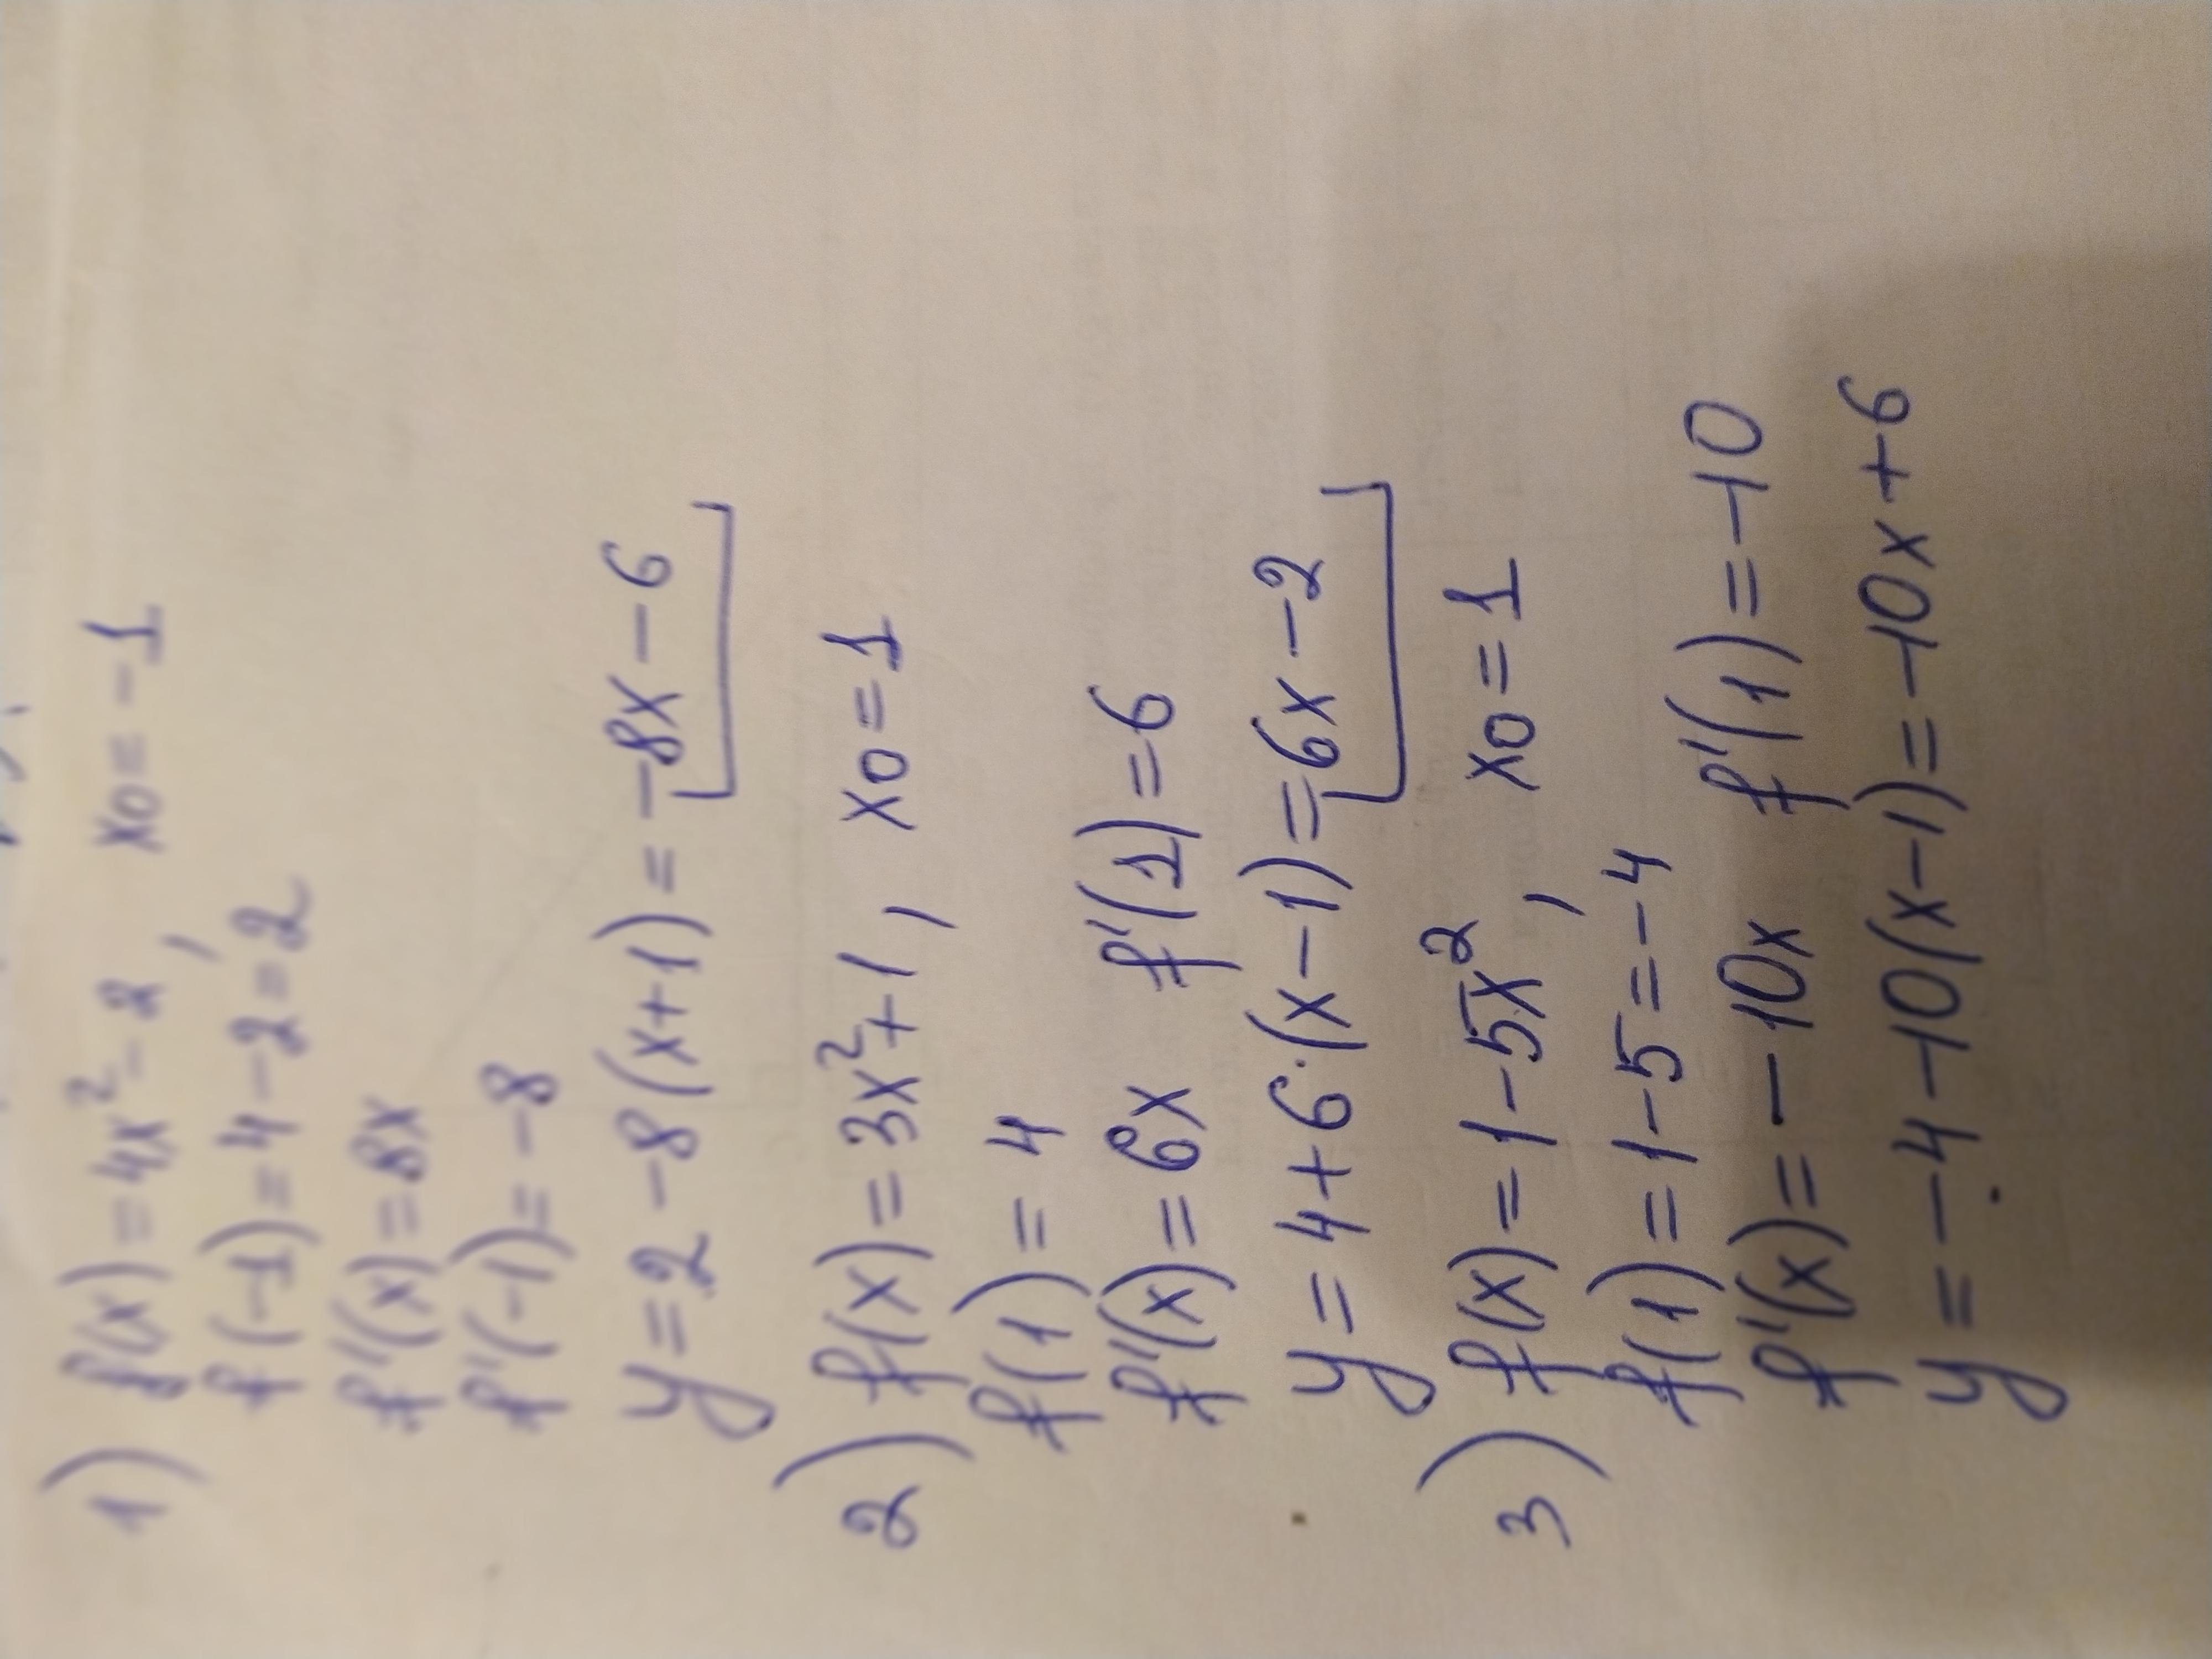 1) f(x) = 4x² - 2, x0 = -1
f(-1) = 4 - 2 = 2
f'(x) = 8x
f'(-1) = -8
y = 2 - 8(x+1) = -8x - 6
2) f(x) = 3x² + 1, x0 = 1
f(1) = 4
f'(x) = 6x f'(1) = 6
y = 4 + 6·(x-1) = 6x - 2
3) f(x) = 1 - 5x², x0 = 1
f(1) = 1 - 5 = -4
f'(x) = -10x f'(1) = -10
y = -4 - 10(x-1) = -10x + 6